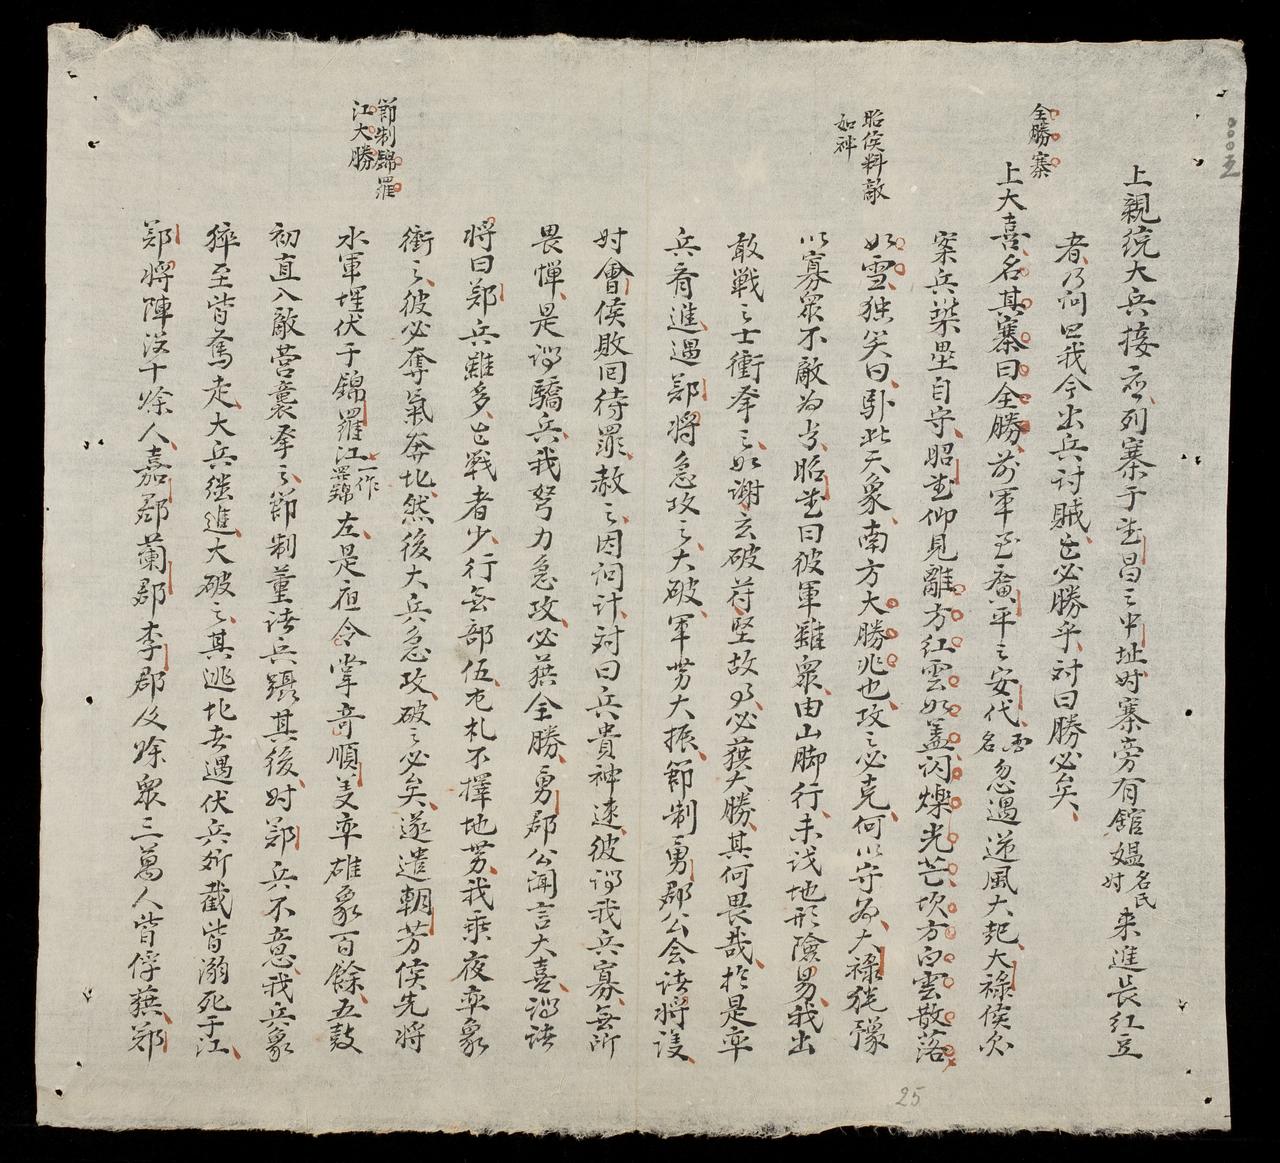 全勝寨
昭侯料敵
如神
節制錦羅
江大勝
上親統大兵接應列寨于武昌之中址時寨旁有館媪名民時來進長紅豆
者乃问曰我今出兵討賊亡必勝乎対曰勝必矣
上大喜名其寨曰全勝前軍至廣平之安代名忽遇逆風大起大祿侯欲
案兵築壘自守昭武仰見離方紅雲如盖闪爍光芒坎方白雲散落
如雪独笑曰卧此天象南方大勝兆也攻之必克何以守為大祿猶豫
以寡眾不敵為言昭武曰彼軍雖眾由山脚行未識地形險易我出
敢戦之士衝拏之如謝玄破苻堅故乃必獲大勝其何畏哉於是率
兵齊進遇鄭将急攻之大破軍势大振節制勇郡公会諸将議
时會侯敗回待罪赦之因问计対曰兵貴神速彼谓我兵寡無所
畏憚是谓驕兵我努力急攻必獲全勝勇郡公闻言大喜谓諸
将曰鄭兵雖多亡戦者少行無部伍屯札不擇地势我乘夜率象
衝之彼必奪氣奔北然後大兵急攻破之必矣遂遣朝芳侯先将
水軍埋伏于錦羅江一作羅錦左是夜令掌奇順美率雄象百餘五鼓
初直入敵营襄拏之節制董諸兵躡其後时鄭兵不意我兵象
猝至皆奮走大兵継進大破之其逃北者遇伏兵所截皆溺死于江
鄭将陣没十余人嘉郡蘭郡李郡及余眾三萬人皆俘獲鄭
25